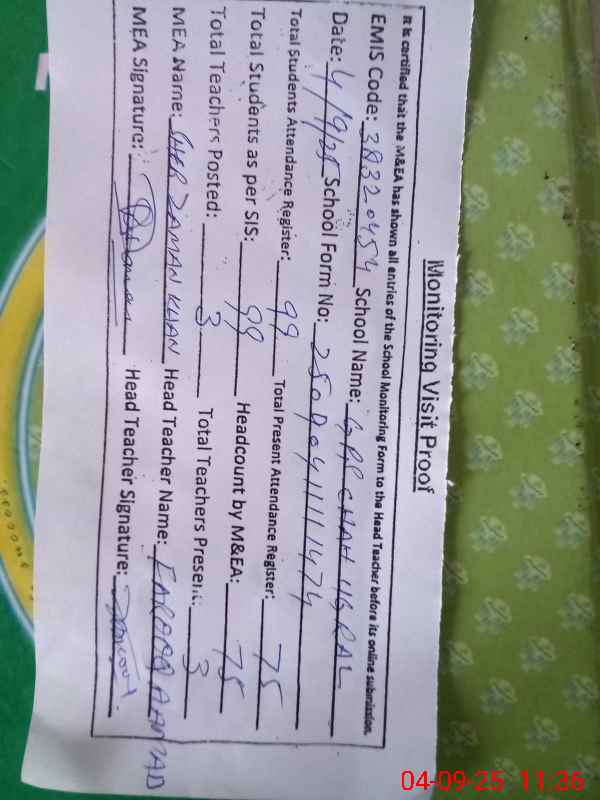 Monitoring Visit Proof
It is certified that the M&EA has shown all entries of the School Monitoring Form to the Head Teacher before its online submission.
EMIS Code: 38320454 School Name: GPP CHAH UGRAL
Date: 4/9/25 School Form No: 250904111474
Total Students Attendance Register: 99 Total Present Attendance Register: 75
Total Students as per SIS: 99 Headcount by M&EA: 75
Total Teachers Posted: 3 Total Teachers Present: 3
MEA Name: SHER ZAMAN KHAN Head Teacher Name: FAROOQ AHMAD
MEA Signature: Head Teacher Signature:
04-09-25 11:36